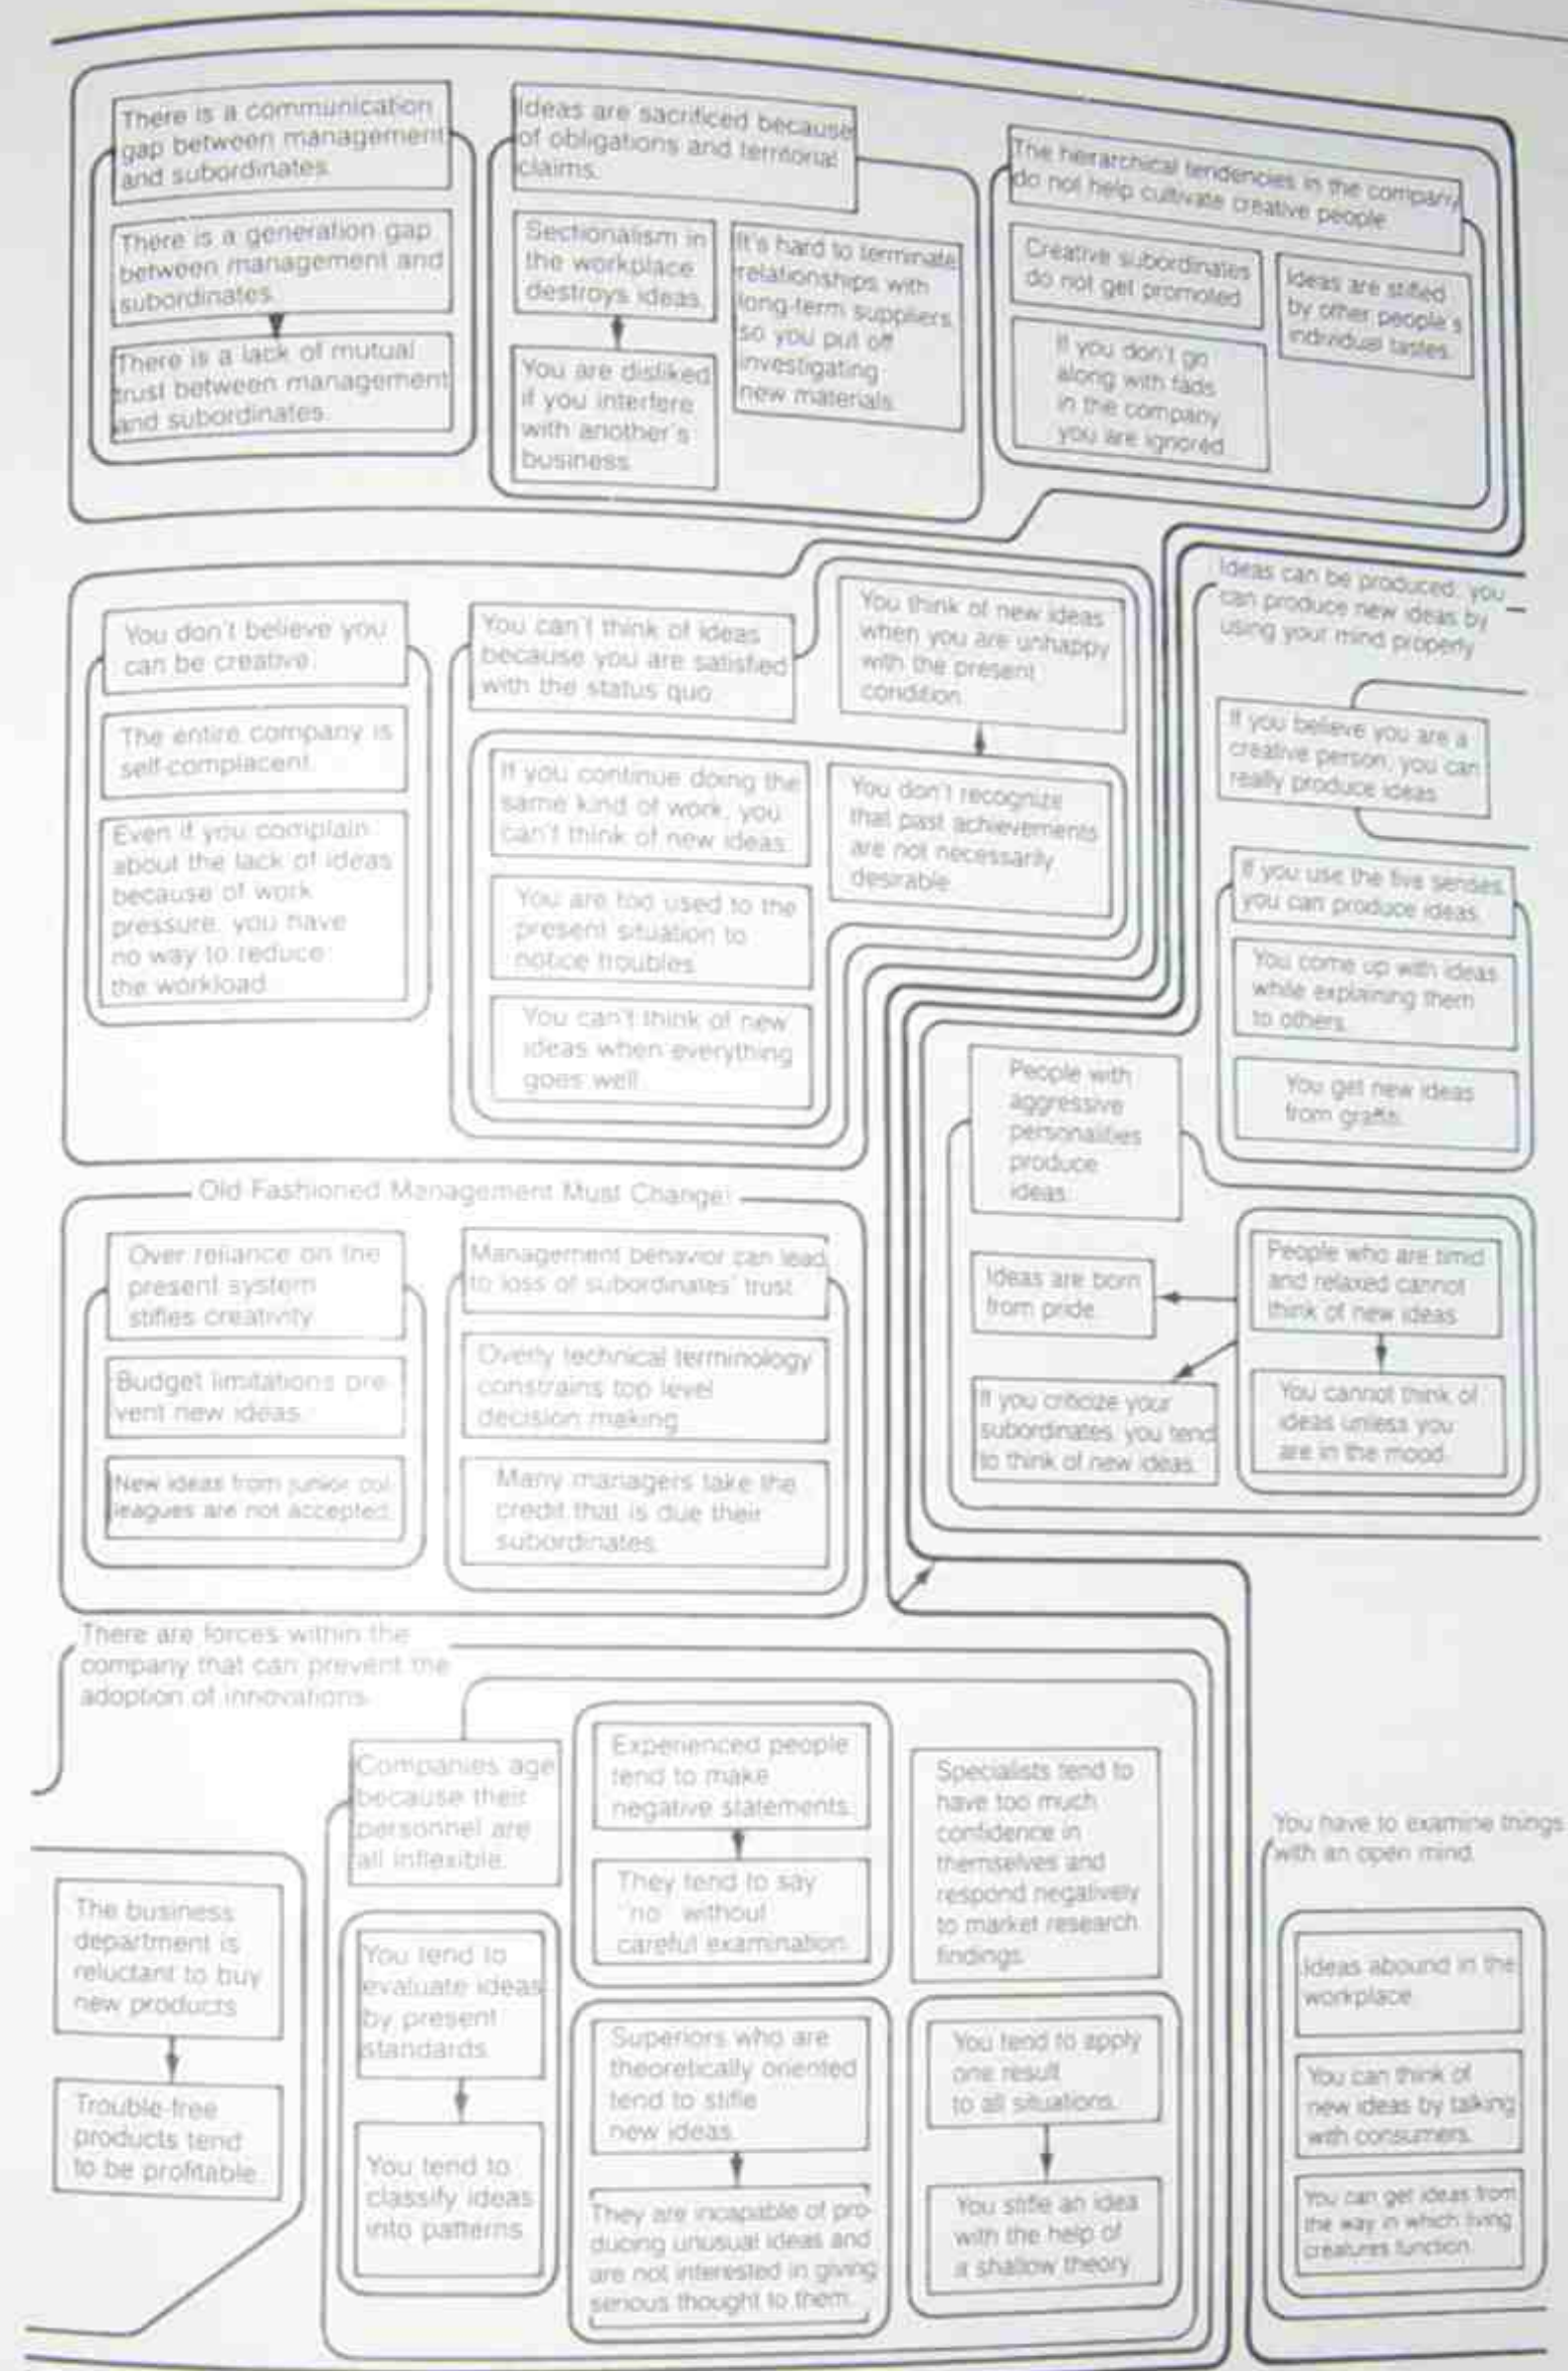 There is a communication
gap between management
and subordinates.
There is a generation gap
between management and
subordinates.
There is a lack of mutual
trust between management
and subordinates.
Ideas are sacrificed because
of obligations and territorial
claims.
Sectionalism in
the workplace
destroys ideas.
You are disliked
if you interfere
with another's
business.
It's hard to terminate
relationships with
long-term suppliers,
so you put off
investigating
new materials.
The heirarchical tendencies in the company
do not help cultivate creative people.
Creative subordinates
do not get promoted.
If you don't go
along with fads
in the company
you are ignored.
Ideas are stifled
by other people's
individual tastes.
You don't believe you
can be creative.
The entire company is
self-complacent.
Even if you complain
about the lack of ideas
because of work
pressure, you have
no way to reduce
the workload.
You can't think of ideas
because you are satisfied
with the status quo.
If you continue doing the
same kind of work, you
can't think of new ideas.
You are too used to the
present situation to
notice troubles.
You can't think of new
ideas when everything
goes well.
You think of new ideas
when you are unhappy
with the present
condition.
You don't recognize
that past achievements
are not necessarily
desirable.
Ideas can be produced, you
can produce new ideas by
using your mind properly.
If you believe you are a
creative person, you can
really produce ideas.
If you use the five senses,
you can produce ideas.
You come up with ideas
while explaining them
to others.
You get new ideas
from graffiti.
People with
aggressive
personalities
produce
ideas.
Ideas are born
from pride.
If you criticize your
subordinates, you tend
to think of new ideas.
People who are timid
and relaxed cannot
think of new ideas.
You cannot think of
ideas unless you
are in the mood.
Old Fashioned Management Must Change!
Over reliance on the
present system
stifles creativity.
Budget limitations pre-
vent new ideas.
New ideas from junior col-
leagues are not accepted.
Management behavior can lead
to loss of subordinates' trust.
Overly technical terminology
constrains top level
decision making.
Many managers take the
credit that is due their
subordinates.
There are forces within the
company that can prevent the
adoption of innovations.
The business
department is
reluctant to buy
new products.
Trouble-free
products tend
to be profitable.
Companies age
because their
personnel are
all inflexible.
You tend to
evaluate ideas
by present
standards.
You tend to
classify ideas
into patterns.
Experienced people
tend to make
negative statements.
They tend to say
"no" without
careful examination.
Superiors who are
theoretically oriented
tend to stifle
new ideas.
They are incapable of pro-
ducing unusual ideas and
are not interested in giving
serious thought to them.
Specialists tend to
have too much
confidence in
themselves and
respond negatively
to market research
findings.
You tend to apply
one result
to all situations.
You stifle an idea
with the help of
a shallow theory.
You have to examine things
with an open mind.
Ideas abound in the
workplace.
You can think of
new ideas by talking
with consumers.
You can get ideas from
the way in which living
creatures function.